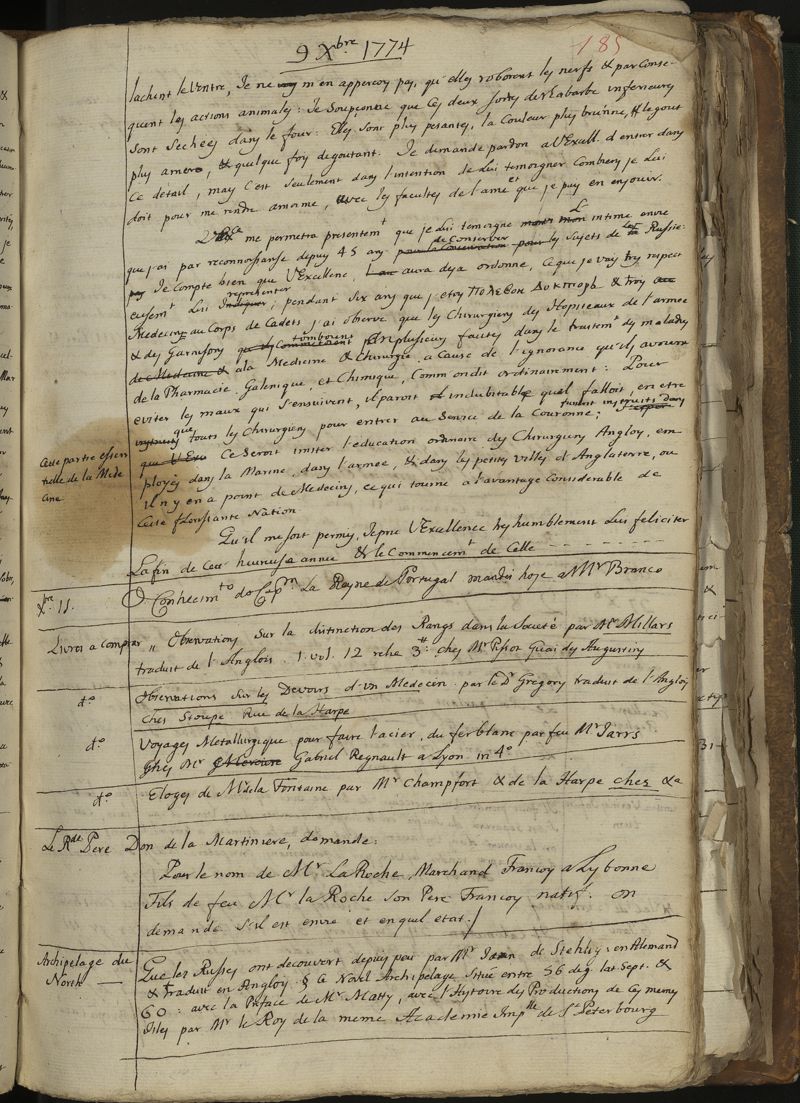 9 Xbre 1774
185
lachent le ventre, Je ne m'en appercoy pas, qu'elles roborent les nerfs & par conse-
quent les actions animales: Je soupçonne que ces deux sortes de Rabarbe inferieures
sont sechées dans le four: Elles sont plus pesantes, la Couleur plus bruinne, le gout
plus amere, & quelque foy degoutant. Je demande pardon a V Excell. d'entrer dans
ce detail, mais c'est seulement dans l'intention de lui temoigner combien je lui
doit pour me rendre amoime, avec les facultes de l'ame et que je puis en enjouir.
me permetra presentemt que je lui temoigne L' intime envie
que j'ai par reconnoissanse depuis 45 ans pour la Conservation pour de Conserver les sujets de la Russie:
Je compte bien que V Excellence, aura deja ordonné, ce que je vay try respect
eusemt Lui Indiquer representer; pendant six ans que j'etoy Полевои Докторъ & troy
Medecin au Corps de Cadets j'ai observé que les Chirurgiens des Hopiteaux de l'armée
& des Garnisons qui commettent tomboient plusieurs fautes dans le traitemt des maladies
de Medecine & a la Medecine & chirurgie, a Cause de l'ignorance qu'ils avoient
de la Pharmacie, Galenique, et Chimique, Comm on dit ordinairement: Pour
eviter les maux qui s'ensuivent, il paroit indubitable qual falloit, en etre
instruits que tous les Chirurgiens pour entrer au Service de la Couronne; fussent instruits dans
Cette partie essen
tielle de la Mede
cine
que V Exc Ce seroit imiter l'education ordinaire des Chirurgiens Anglois, em
ployés dans la Marine, dans l'armée, & dans les petites villes d'Angleterre, ou
il n'y en a point de Medecins, ce qui tourne a l'avantage Considerable de
Cette florissante Nation
Qu'il me soit permis, Je prie V Excellence tres humblement Lui feliciter
La fin de cett heureuse année & le Commencemt de Celle - - - - - -
Xbre 11.
O Conhecimto do Capm La Reyne de Portugal mandei hoje a Mr Branco
Livres a comprar
" Observations sur la distinction des Rangs dans la Societé par Mr Millars
traduit de l'Anglois. 1. vol. 12 relié 3# chez Mr Pissot Quai des Augustins
do
Observations sur les Devoirs d'un Medecin: par le Dr Gregory traduit de l'Anglois
Chez Stoupe Rue de la Harpe
do
Voyages Metallurgique pour faire l'acier, du fer blanc par feu Mr Jarrs
Chez Mr Mercure Gabriel Regnault a Lyon in 4o
do
Eloges de Mr de la Fontaine par Mr Champfort & de la Harpe chez La
Le Rde Pere Don de la Martiniere, demande:
Pour le nom de Mr La Roche, Marchand Francoy a Lybonne
Fils de feu Mr la Roche son Pere Francoy natif: on
demande s'il est envié et en quel etat./
Archipelage du
North —
Que les Russes ont decouvert depuis peu par Mr Jean de Stehlin: en Alemand
& traduit en Anglois. § A Novel Archipelage situé entre 56 deg. lat. Sept. &
60: avec la Preface de Mr Matty, avec l'Hytoire des Productions de Ces memes
Isles par Mr le Roy de la meme Academie Implle de St Peterbourg